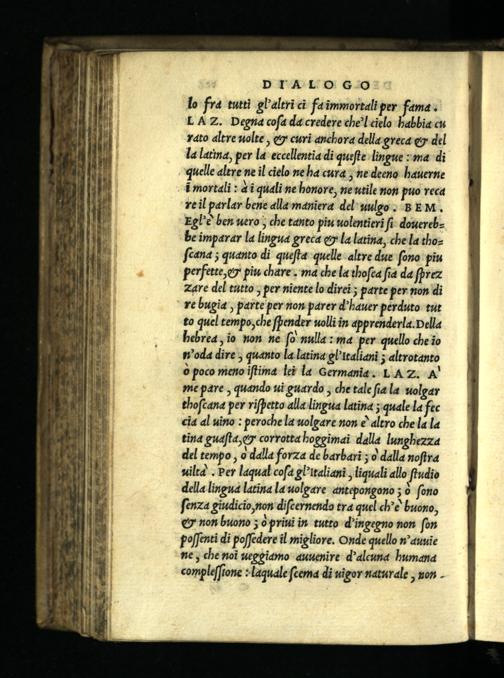 DIALOGO
lo fra tutti gl'altri ci fa immortali per fama.
LAZ. Degna cosa da credere che'l cielo habbia cu
rato altre uolte, & curi anchora della greca & del
la latina, per la eccellentia di queste lingue: ma di
quelle altre ne il cielo ne ha cura, ne deeno hauerne
i mortali: à i quali ne honore, ne utile non puo reca
re il parlar bene alla maniera del uulgo. BEM.
Egl'è ben uero, che tanto piu uolentieri si douereb=
be imparar la lingua greca & la latina, che la tho=
scana; quanto di questa quelle altre due sono piu
perfette, & piu chare. ma che la thosca sia da sprez
zare del tutto, per niente lo direi; parte per non di
re bugia, parte per non parer d'hauer perduto tut
to quel tempo, che spender uolli in apprenderla. Della
hebrea, io non ne sò nulla: ma per quello che io
n'oda dire, quanto la latina gl'Italiani; altrotanto
ò poco meno istima lei la Germania. LAZ. A'
me pare, quando ui guardo, che tale sia la uolgar
thoscana per rispetto alla lingua latina; quale la fec
cia al uino: peroche la uolgare non è altro che la la
tina guasta, & corrotta hoggimai dalla lunghezza
del tempo, ò dalla forza de barbari; ò dalla nostra
uiltà. Per laqual cosa gl'Italiani, liquali allo studio
della lingua latina la uolgare antepongono; ò sono
senza giudicio, non discernendo tra quel ch'è buono,
& non buono; ò priui in tutto d'ingegno non son
possenti di possedere il migliore. Onde quello n'auuie
ne, che noi ueggiamo auuenire d'alcuna humana
complessione: laquale scema di uigor naturale, non